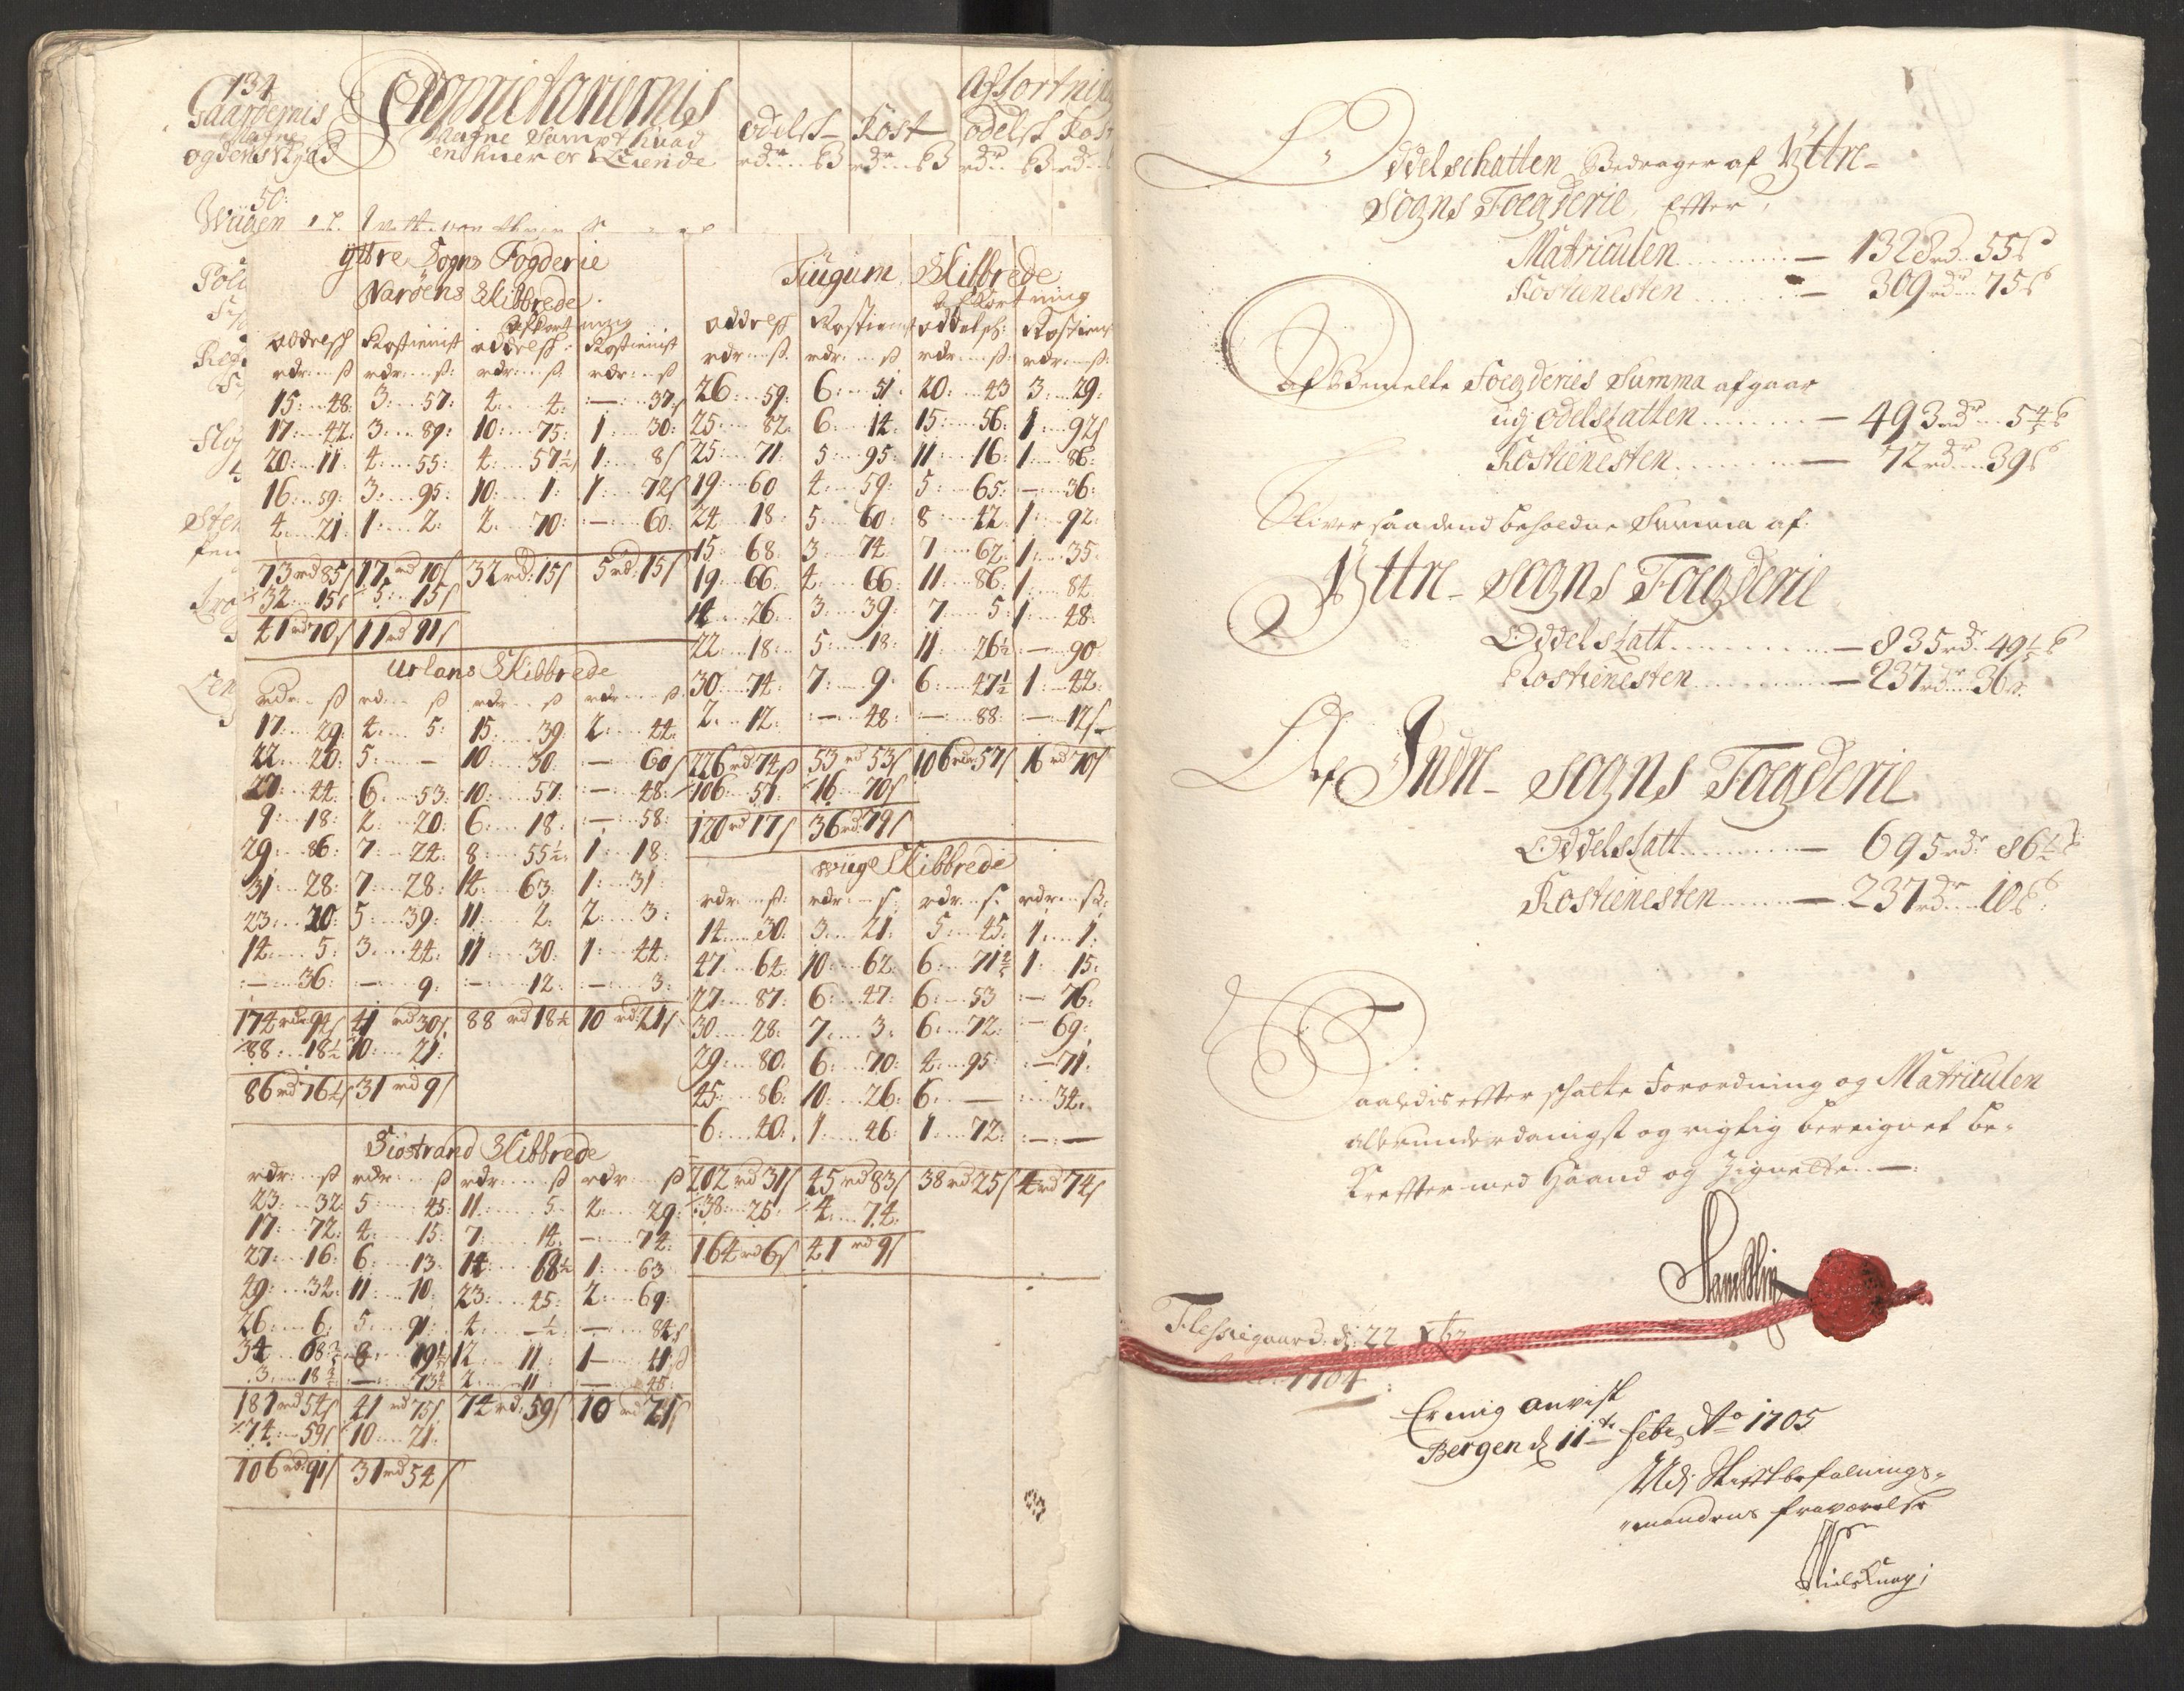 134
Gaardernis Nafne
og deris Skyld
Proprietariernis
Nafne Sampt huad
enhuer er Eiende
odelsk Kost
rdr ß rdr ß
Afkortning
odelsk Kost
rdr ß rd
50:
Wiigen
Yttre Sogns Fogderie
Narøens Skibbrede
Afkortning
oddelsch Rostienist oddelsch Rostienist
rdr ß rdr ß: rdr ß: rdr ß
15: 48: 3: 57: 4: 4: : — : 37ſ
17: 42: 3: 89: 10: 75: 1: 30:
20: 11: 4: 55: 4: 57½ 1: 8ſ
16: 59: 3: 95: 10: 1: 1: 72ſ
4: 21: 1: 2: 2: 70: : — : 60:
73 rd 85ſ 17 rd 10ſ 32 rd: 15ſ 5 rd: 15ſ
32: 15ſ 5: 15ſ
41 rd 70ſ 11 rd 91ſ
Urlans Skibbrede
rdr ß rdr ß rdr ß rdr ß
17: 29: 4: 5: 15: 39: 2: 44:
22: 20: 5: — 10: 30: : — 60ſ
27: 44: 6: 53: 10: 57: : — 48:
9: 18: 2: 20: 6: 18: : — : 58:
29: 86: 7: 24: 8: 55½: 1: 18:
31: 28: 7: 28: 14: 63: 1: 31:
23: 20: 5: 39: 11: 2: 2: 3:
14: 5: 3: 44: 11: 30: 1: 44:
: — 36: : — 9: : — 12: : — 3:
174 rdr 94ſ 41 rd 30ſ 88 rd 18½ 10 rd: 21ſ
88: 18½ 10: 21:
86 rd 76½ſ 31 rd 9ſ
Siostrand Skibbrede
rdr ß rdr ß rdr ß rdr ß
23: 32: 5: 45: 11: 5: 2: 29:
17: 72: 4: 15: 7: 14: : — 74:
27: 16: 6: 13: 14: 68½ 1: 63
49: 34: 11: 10: 23: 45: 2: 69:
26: 6: 5: 91: 4: — ½: : — 84ſ
34 68 8: 12 11: 1 — 41ß
3: 18 : — 2: 11 : — 45:
181 rd 54ſ 41 rd 75ſ 74 rd: 59ſ 10 rd 21ſ
74: 59ſ 10: 21:
106 rd: 91ſ 31 rd 54ſ
Tiugum Skibbrede
Afkortning
oddelsch Rostienist oddelsch: Rostienist
rdr ß. rdr: ß rdr ß: rdr ß:
26: 59: 6: 51: 20: 43 3: 29:
25: 82: 6: 14: 15: 56: 1: 92ſ
25: 71: 5: 95: 11: 16: 1: 86:
19: 60 4: 59: 5: 65: — : 36:
24: 18: 5: 60: 8: 42: 1: 92:
15: 68: 3: 74 7: 62: 1: 35:
19: 66: 4: 66: 11: 86: 1: 84
14: 26: 3: 39: 7: 5: 1: 48:
22: 18: 5: 18: 11: 26½ : — 90:
30: 74: 7: 9: 6: 47½ 1: 42:
2: 12: : — : 48: : — : 88: : — : 12ſ
226 rd 74ß 53 rd 53ſ 106 rdr 57ſ 16 rd 70ſ
106: 57: 16: 70ſ
120 rd 17ſ 36 rd: 79ſ
Wiige Skibbrede
rdr: ß: rdr: ſ: rdr: ſ: rdr: ß:
14: 30: 3: 21: 5: 45: 1: 1:
47: 64: 10: 62: 6: 71½ 1: 15:
27: 87: 6: 47: 6: 53 : — 76:
30: 28: 7: 3: 6: 72: : — 69:
29: 80: 6: 70: 4: 95 : — 71:
45: 86: 10: 26: 6: — : 34:
6: 40: 1: 46: 1: 72: : — : —
202 rd 31ſ 45 rd 83ſ 38 rd 25ſ 4 rd 74ſ
38: 25: 4: 74:
164 rd 6ſ 41 rd 9ſ
Oddelschatten Bedrager af Yttre-
Sogns Foegderie, Efter
Matriculen — 1328 rd 55ß
Rostienesten — 309 rdr 75ß
Af Bemelte Foegderies Summa afgaar
udj odelskatten — 493 rdr 5½ ß
Rostienesten — 72 rdr 39ß
Bliver saa dend beholdne Summa af:
Yttre-Sogns Foegderie
Oddelskatt — 835 rdr 49½ ß
Rostienesten — 237 rdr 36ß
Af Indre-Sogns Foegderie
Oddelskatt — 695 rdr 86½ ß
Rostienesten — 237 rdr 10ß
Saaledis efter schatte Forordning og Matriculen
allerunderdanigst og rigtig beregnet be-
kreffter med Haand og Zignette —
Flessiegaard d: 22 xbr
1704:
Er mig anvist
Bergen d 11te Febr Ao 1705
Udj Stiftbefalnings-
mandens fraværelse
Niels Knag